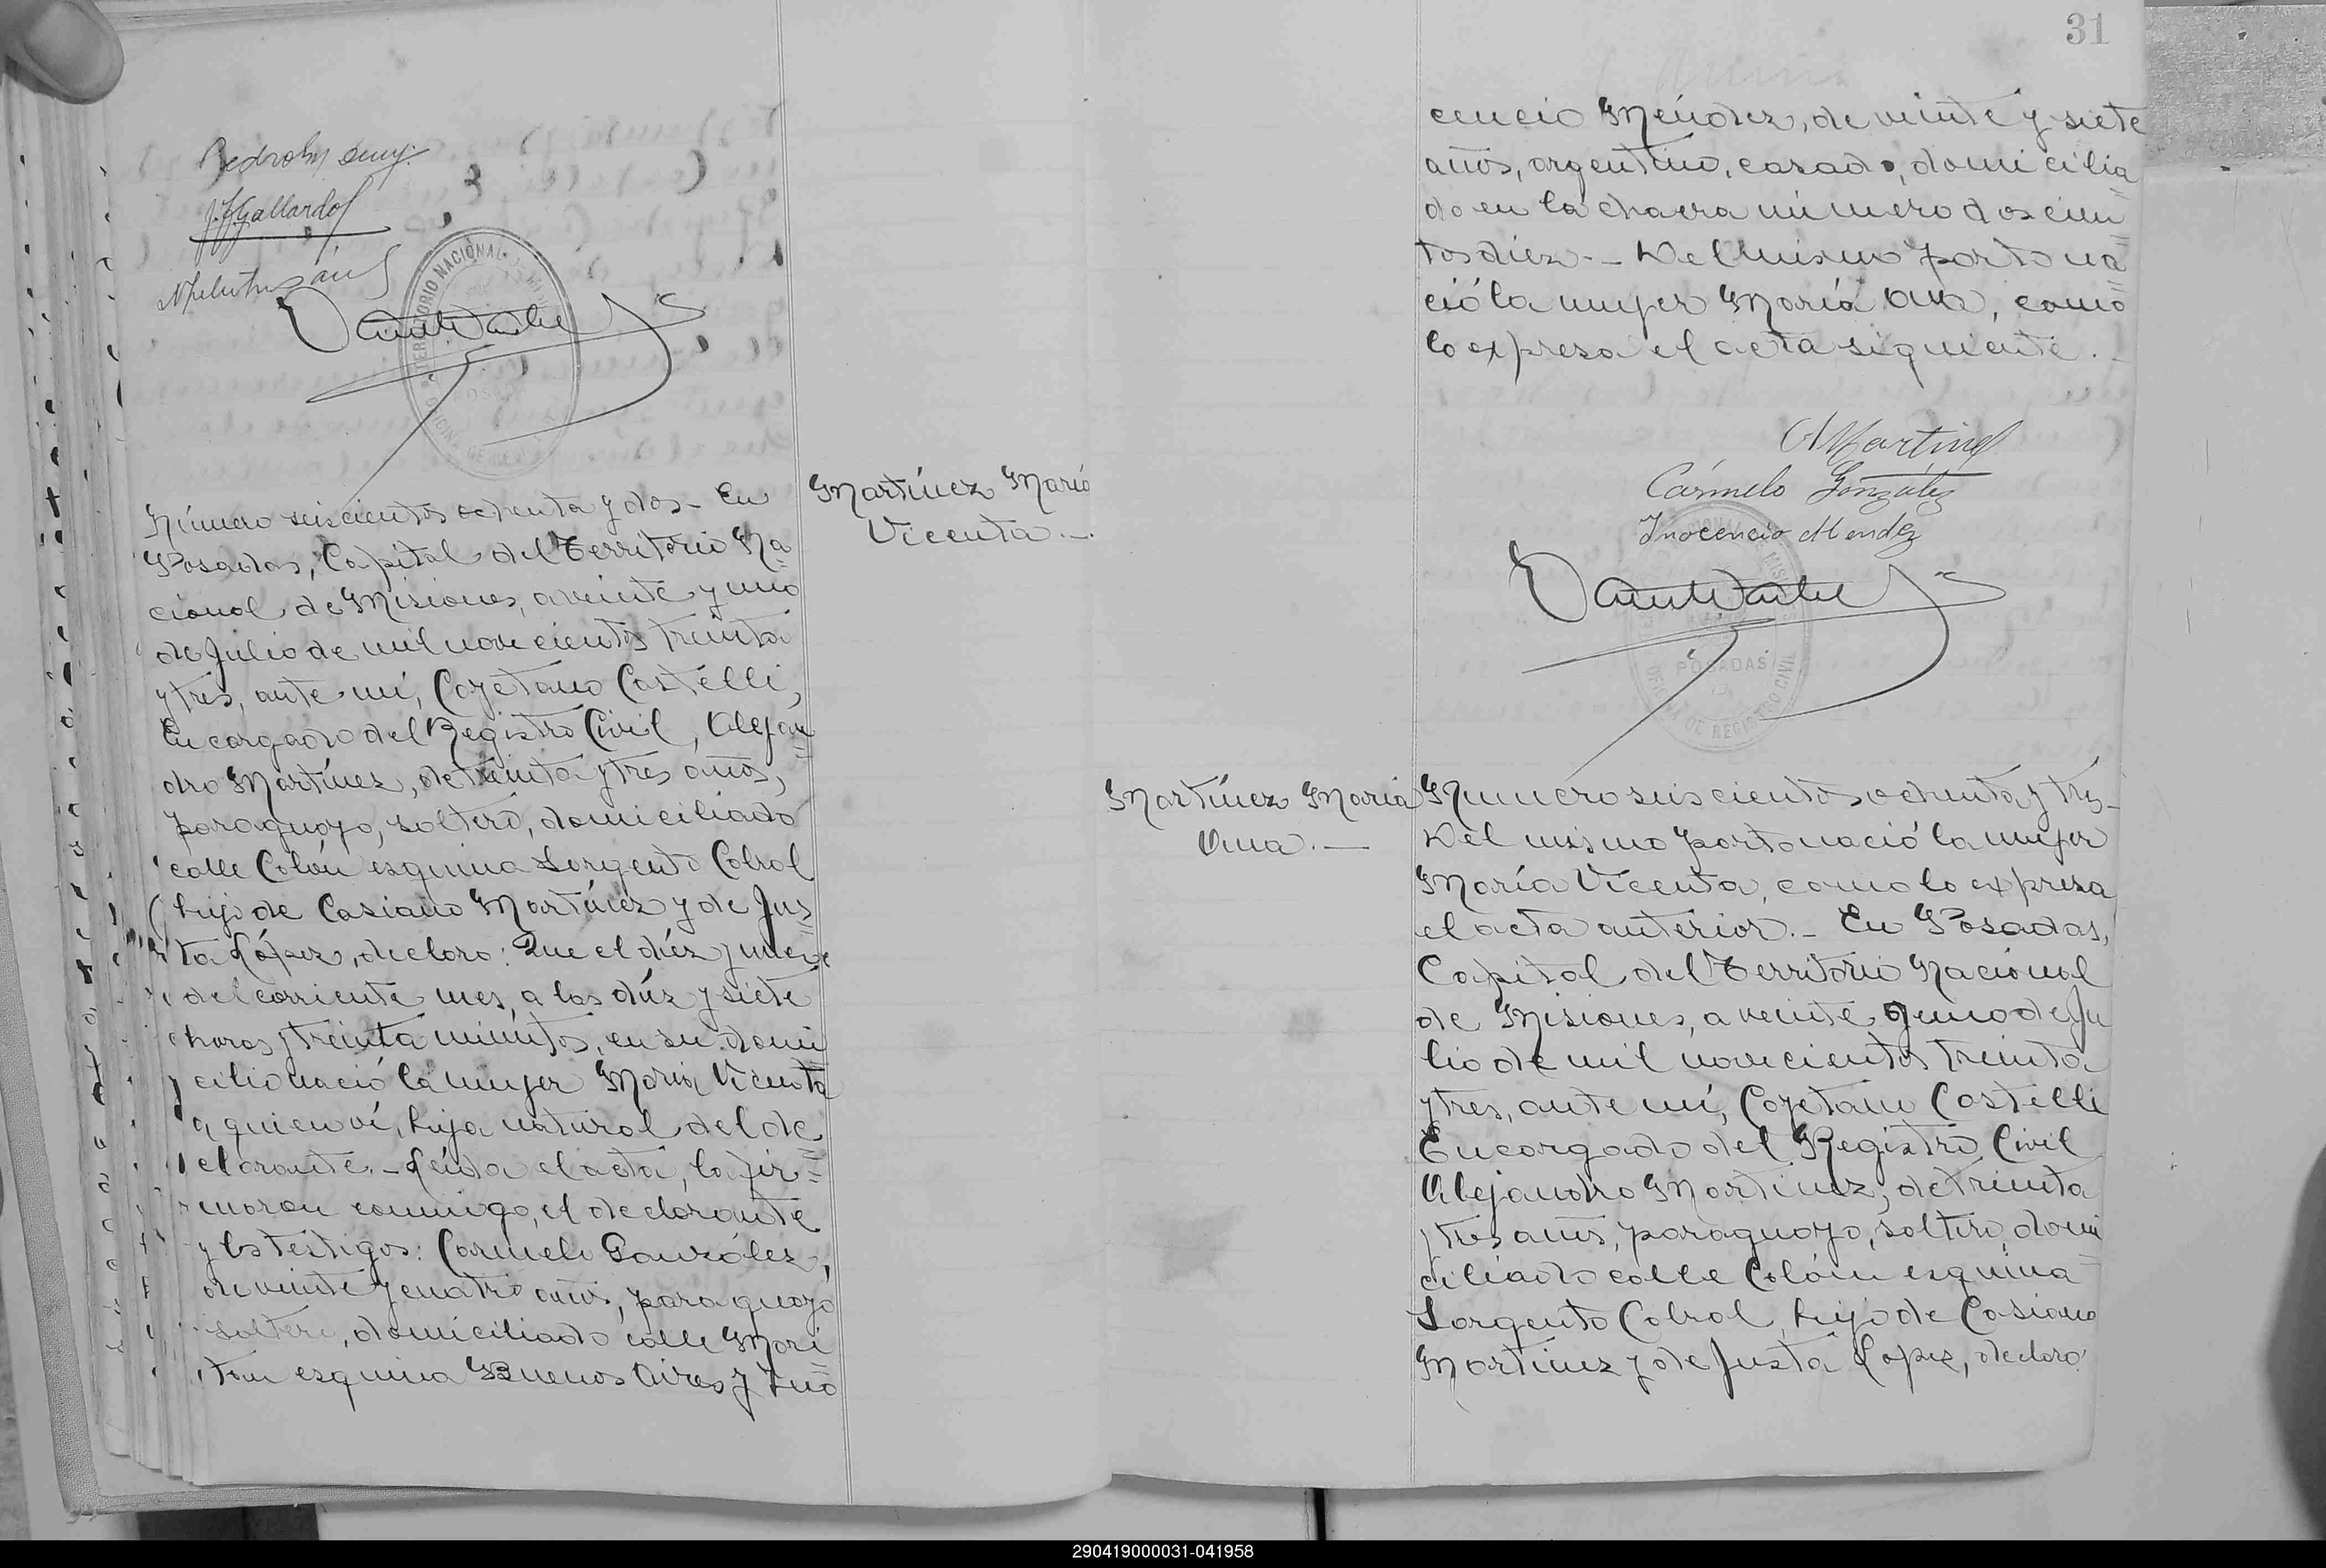 J. F. Gallardo
Martínez María
Vicenta.—
Número seiscientos ochenta y dos— En
Posadas, Capital del Territorio Na=
cional de Misiones, a veinte y uno
de Julio de mil novecientos treinta
y tres, ante mí, Cayetano Castelli,
Encargado del Registro Civil, Alejan=
dro Martínez, de treinta y tres años,
paraguayo, soltero, domiciliado
calle Colón esquina Sargento Cabral
hijo de Casiano Martínez y de Jus=
ta López, declaro: Que el diez y nueve
del corriente mes, a las diez y siete
horas y treinta minutos, en su domi
cilio nació la mujer María Vicenta
a quien ví, hija natural del de=
clarante.— Leída el acta, la fir=
maron conmigo, el declarante
y los testigos: Carmelo González,
de veinte y cuatro años, paraguayo
soltero, domiciliado calle Mori=
tan esquina Buenos Aires y Ino
31
cencio Méndez, de veinte y siete
años, argentino, casado, domicilia=
do en la chacra número doscien=
tos diez.— Del mismo parto na=
ció la mujer María Ana, como
lo expresa el acta siguiente.—
A Martinez
Cármelo González
Inocencio Mendez
POSADAS
OFICINA DE REGISTRO CIVIL
Martínez María
Ana.—
Numero seiscientos ochenta y tres—
Del mismo parto nació la mujer
María Vicenta, como lo expresa
el acta anterior.— En Posadas,
Capital del Territorio Nacional
de Misiones, a veinte y uno de Ju
lio de mil novecientos treinta
y tres, ante mí, Cayetano Castelli
Encargado del Registro Civil
Alejandro Martinez, de treinta
y tres años, paraguayo, soltero, domi=
ciliado calle Colón esquina
Sargento Cabral, hijo de Casiano
Martinez y de Justa Lopez, declaro:
290419000031-041958